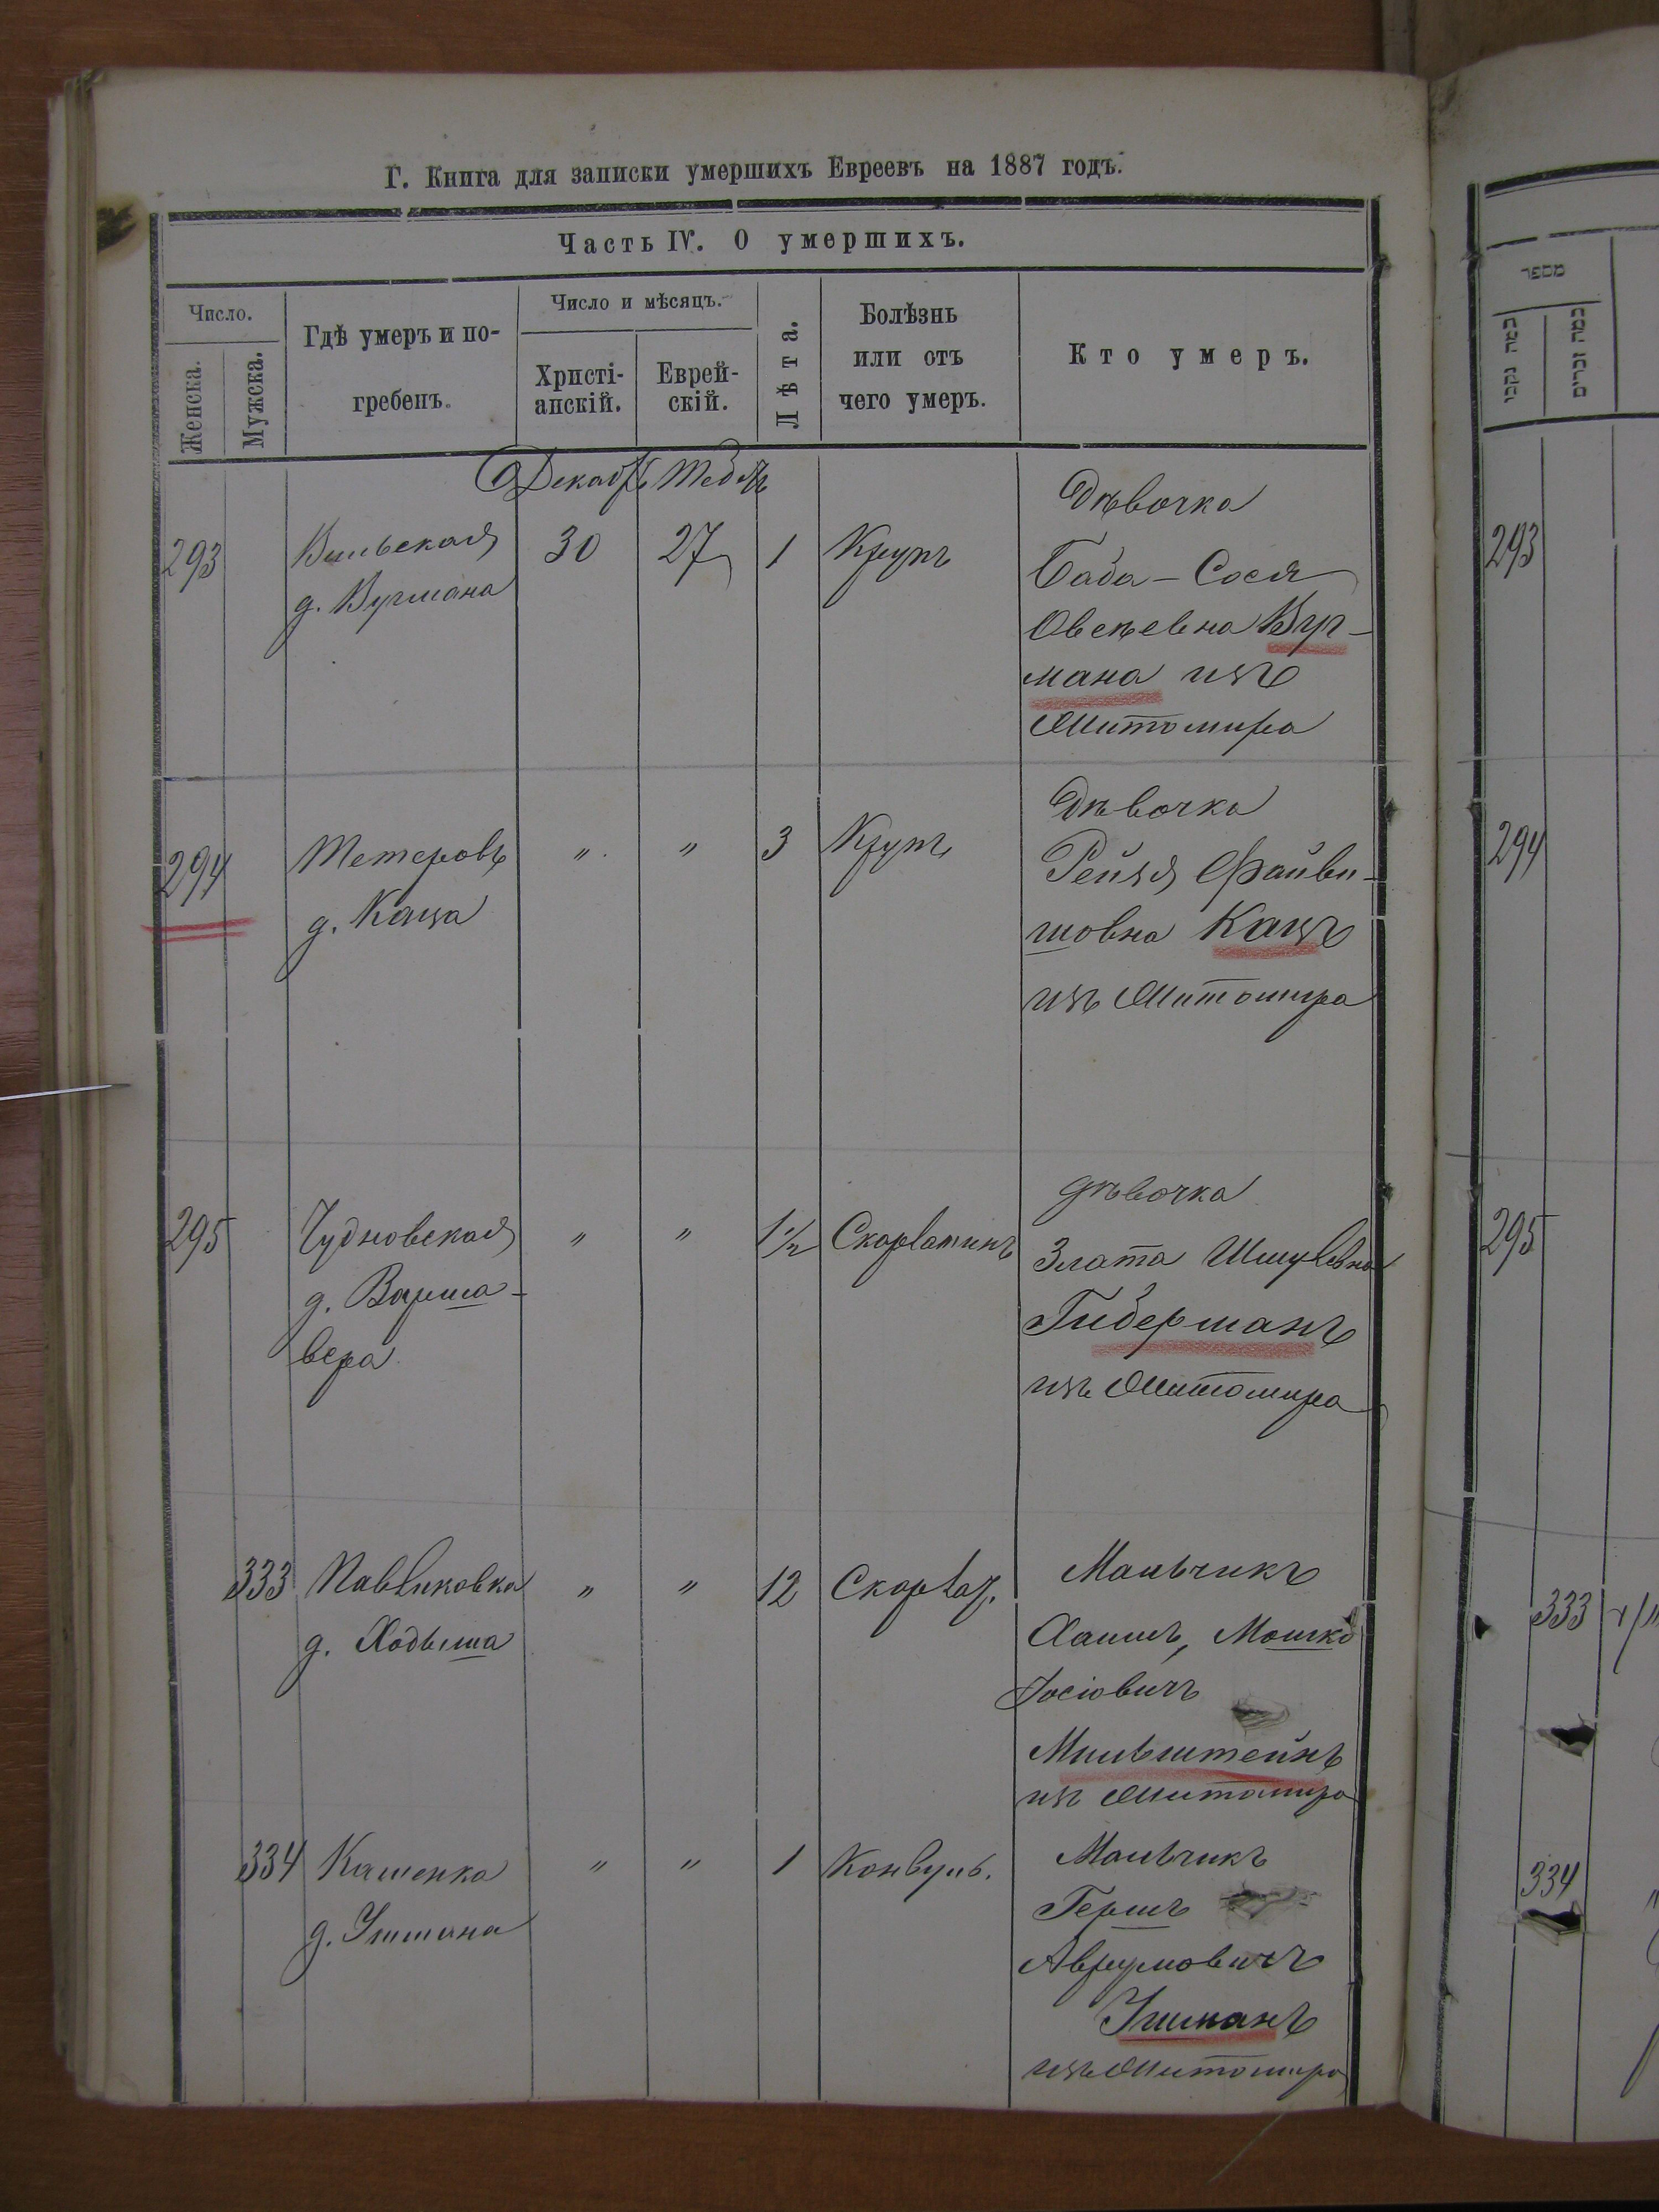 Г. Книга для записки умершихъ Евреевъ на 1887 годъ.
Часть IV. О умершихъ.
Число.
Женска.
Мужска.
Гдѣ умеръ и по-
гребенъ.
Число и мѣсяцъ.
Христі-
анскій.
Еврей-
скій.
Лѣта.
Болѣзнь
или отъ
чего умеръ.
Кто умеръ.
מספר
כמה נקבות
כמה זכרים
Декабрь
293
Вильская
д. Вугмана
30
27
1
Крупъ
Дѣвочка
Баба-Сося
Овсѣевна Вуг-
мана изъ
Житомира
293
294
Тетеровъ
д. Каца
"
"
3
Крупъ
Дѣвочка
Рейзя Файви-
шовна Кацъ
изъ Житомира
294
295
Чудновская
д. Варша-
вера
"
"
1½
Скарлатинъ
дѣвочка
Злата Шмулевна
Гиберманъ
изъ Житомира
295
333
Павликовка
д. Ходыша
"
"
12
Скарлат.
Мальчикъ
Хаимъ, Мошко
Іосіовичъ
Мильштейнъ
изъ Житомира
333
334
Кашенка
д.
"
"
1
Конвуль.
Мальчикъ
Гершъ
Аврумовичъ
изъ Житомира
334